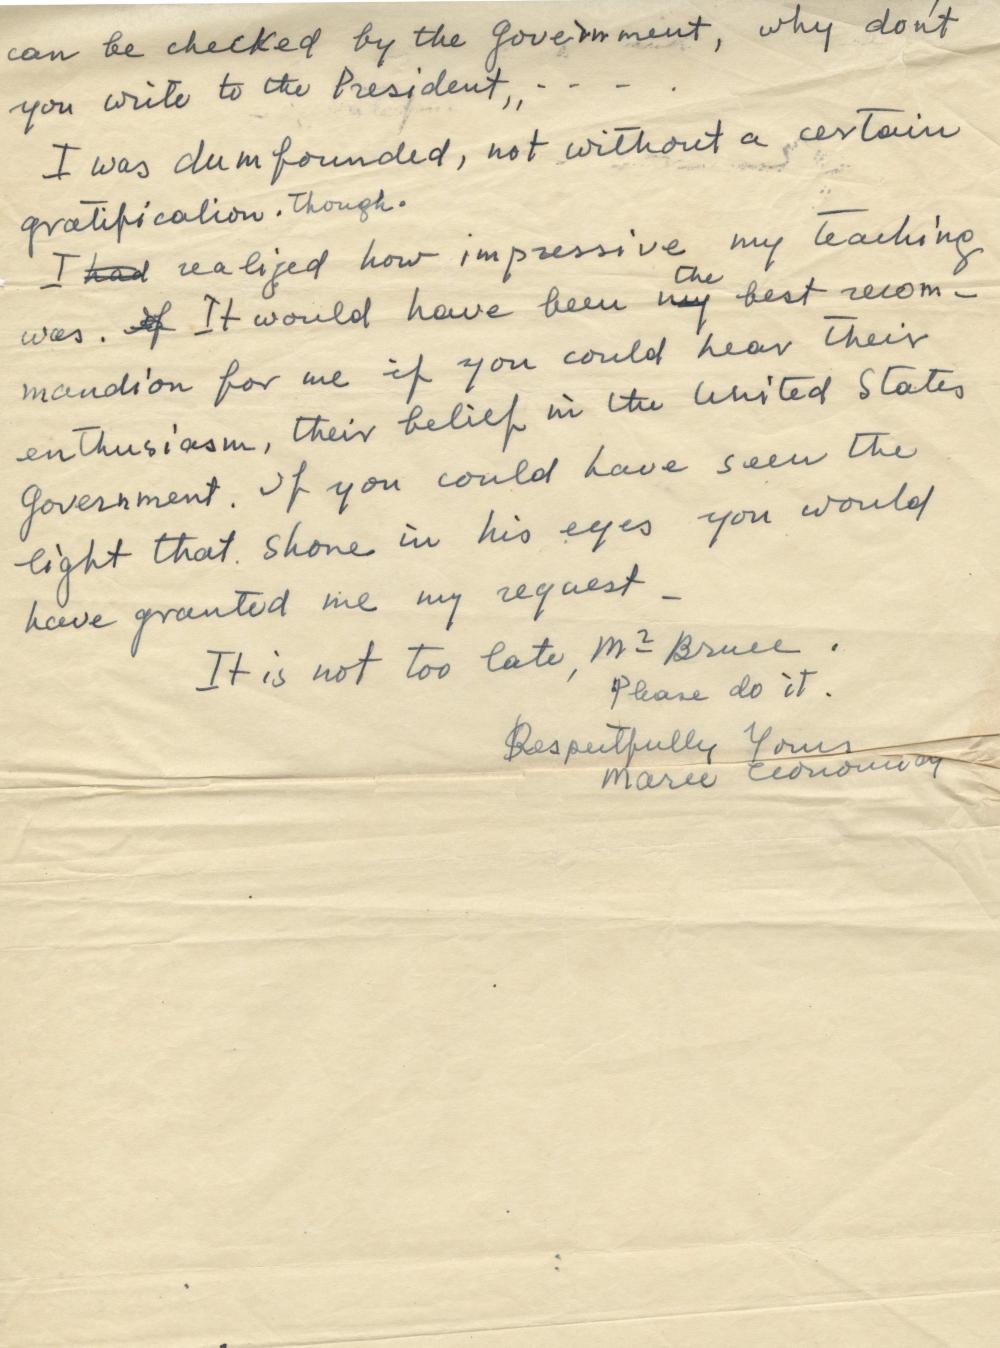 can be checked by the Government, why don't
you write to the President,, - - - .
I was dumfounded, not without a certain
gratification. Though.
I had realized how impressive my teaching
was. If It would have been my the best recom-
mandion for me if you could hear their
enthusiasm, their belief in the United States
Government. If you could have seen the
light that shone in his eyes you would
have granted me my request -
It is not too late, Mr Bruce.
Please do it.
Respectfully Yours
Marie